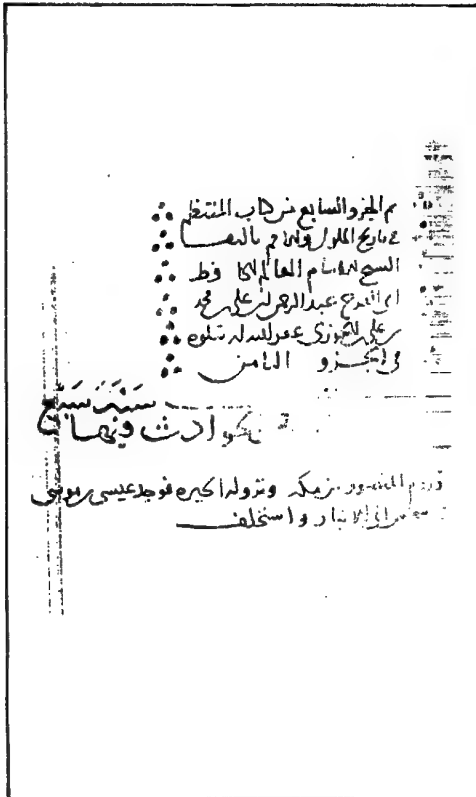 تم الجزو السابع من كتاب المنتظم
في تاريخ الملوك والامم تاليف
الشيخ الامام العالم الحافظ
ابي الفرج عبد الرحمن بن علي بن محمد
بن علي الجوزي عفر الله له يتلوه
في الجزو الثامن
سنة سبع
الحوادث فيها
قدوم المنصور من مكة ونزوله الحيره فوجد عيسى بن موسى
الى الانبار واستخلف